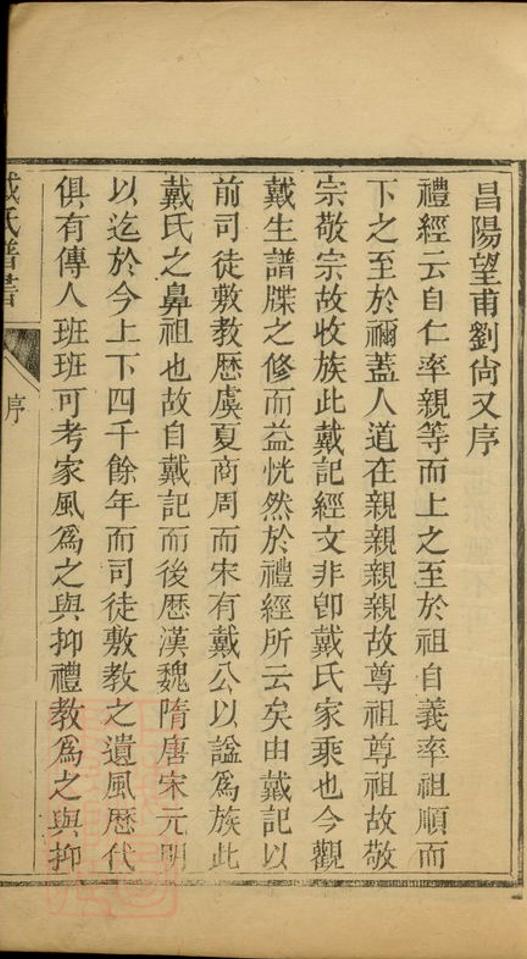 昌陽望甫劉尙又序
禮經云自仁率親等而上之至於祖自義率祖順而
下之至於禰蓋人道在親親親親故尊祖尊祖故敬
宗敬宗故收族此戴記經文非卽戴氏家乘也今觀
戴生譜牒之修而益恍然於禮經所云矣由戴記以
前司徒敷教歷虞夏商周而宋有戴公以諡爲族此
戴氏之鼻祖也故自戴記而後歷漢魏隋唐宋元明
以迄於今上下四千餘年而司徒敷教之遺風歷代
俱有傳人班班可考家風爲之與抑禮教爲之與抑
戴氏譜書
序